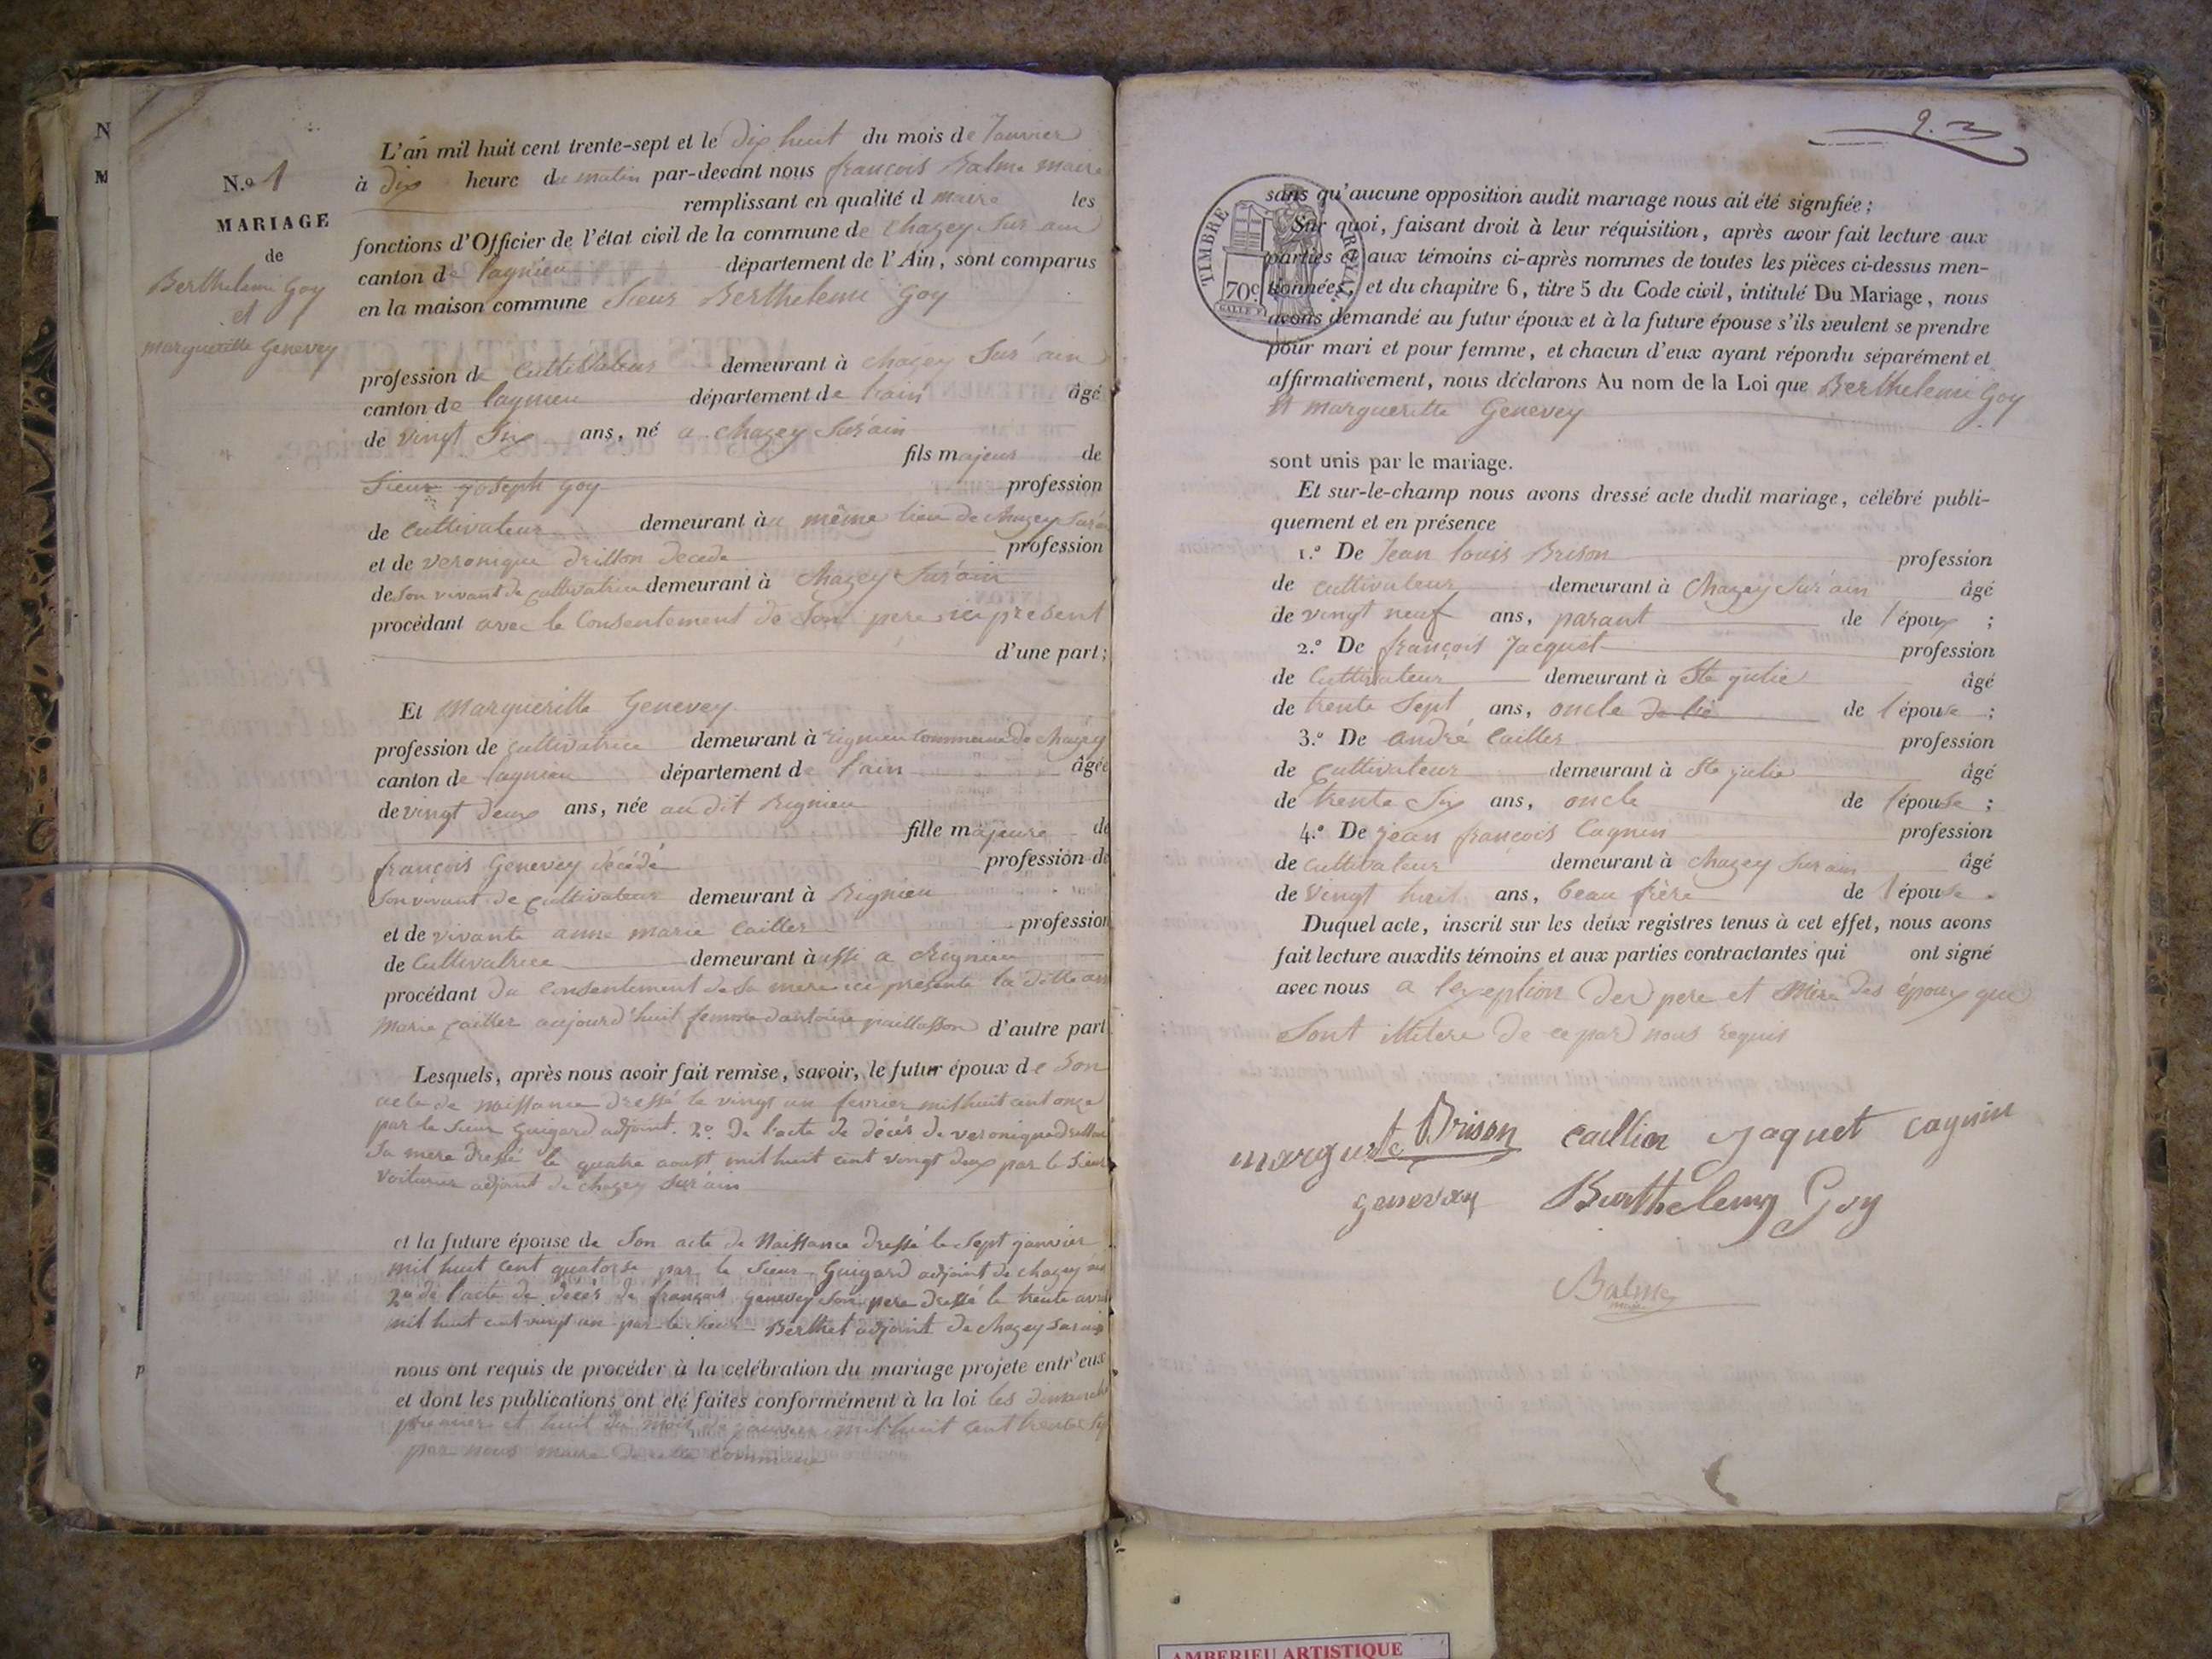 N
M
N.o 1
MARIAGE
de
Berthelemi Goy
et
margueritte Genevey
L'an mil huit cent trente-sept et le dix huit du mois de Janvier
à dix heure du matin par-devant nous françois Balme maire
remplissant en qualité d maire les
fonctions d'Officier de l'état civil de la commune de Chazey Sur ain
canton de lagnieu département de l'Ain, sont comparus
en la maison commune Sieur Berthelemi Goy
profession de Cultivateur demeurant à chazey Sur ain
canton de lagnieu département de l'ain âgé
de vingt Six ans, né a chazey Sur ain
fils majeur de
Sieur joseph Goy profession
de Cultivateur demeurant à même lieu de chazey Sur ain
et de veronique drillon decede profession
de Son vivant de cultivatrice demeurant à Chazey Sur ain
procédant avec le Consentement de Son pere ici present
d'une part;
Et Margueritte Genevey
profession de cultivatrice demeurant à rignieu Commune de chazey
canton de lagnieu département de l'ain âgée
de vingt deux ans, née au dit Rignieu
fille majeure de
françois Genevey décédé profession de
Son vivant de cultivateur demeurant à Rignieu
et de vivante anne marie Cailler profession
de Cultivatrice demeurant aussi a Rignieu
procédant du Consentement de Sa mere ici présente la ditte ann
Marie Cailler aujourd'huit femme d'antoine paillasson d'autre part
Lesquels, après nous avoir fait remise, savoir, le futur époux de Son
acte de naissance dressé le vingt un fevrier mil huit cent onze
par le Sieur Guigard adjoint. 2o. De l'acte de décés de veronique drillon
Sa mere dressé le quatre aoust mil huit cent vingt deux par le Sieur
voiturier adjoint de chazey Sur ain
et la future épouse de Son acte de Naissance dressé le Sept janvier
mil huit cent quatorse par le Sieur Guigard adjoint de chazey
2o de l'acte de décés de françois Genevey Son pere dressé le trente avril
mil huit cent vingt un par le Sieur Berthet adjoint de chazey Sur ain
nous ont requis de procéder à la celébration du mariage projete entr'eux
et dont les publications ont été faites conformément à la loi les dimanche
premier et huit du mois de janvier mil huit cent trente sept
par nous maire de cette Commune
p
sans qu'aucune opposition audit mariage nous ait été signifiée;
Sur quoi, faisant droit à leur réquisition, après avoir fait lecture aux
parties et aux témoins ci-après nommes de toutes les pièces ci-dessus men-
tionnées, et du chapitre 6, titre 5 du Code civil, intitulé Du Mariage, nous
avons demandé au futur époux et à la future épouse s'ils veulent se prendre
pour mari et pour femme, et chacun d'eux ayant répondu séparément et
affirmativement, nous déclarons Au nom de la Loi que Berthelemi Goy
et margueritte Genevey
TIMBRE ROYAL
70c
sont unis par le mariage.
Et sur-le-champ nous avons dressé acte dudit mariage, célébré publi-
quement et en présence
1.o De Jean louis Brison profession
de cultivateur demeurant à Chazey Sur ain âgé
de vingt neuf ans, parant de l'époux ;
2.o De françois Jacquet profession
de Cultivateur demeurant à Ste julie âgé
de trente Sept ans, oncle de l'épouse ;
3.o De andré Cailler profession
de Cultivateur demeurant à Ste julie âgé
de trente Six ans, oncle de l'épouse ;
4.o De jean françois Cagnin profession
de cultivateur demeurant à chazey Sur ain âgé
de Vingt huit ans, beau frère de l'épouse .
Duquel acte, inscrit sur les deux registres tenus à cet effet, nous avons
fait lecture auxdits témoins et aux parties contractantes qui ont signé
avec nous a l'exeption des pere et mère des époux que
Sont illitere de ce par nous requis
Brison caillier jaquet cagnin
marguerite
genevay Barthelemy Goy
Balme
maire
AMBERIEU ARTISTIQUE